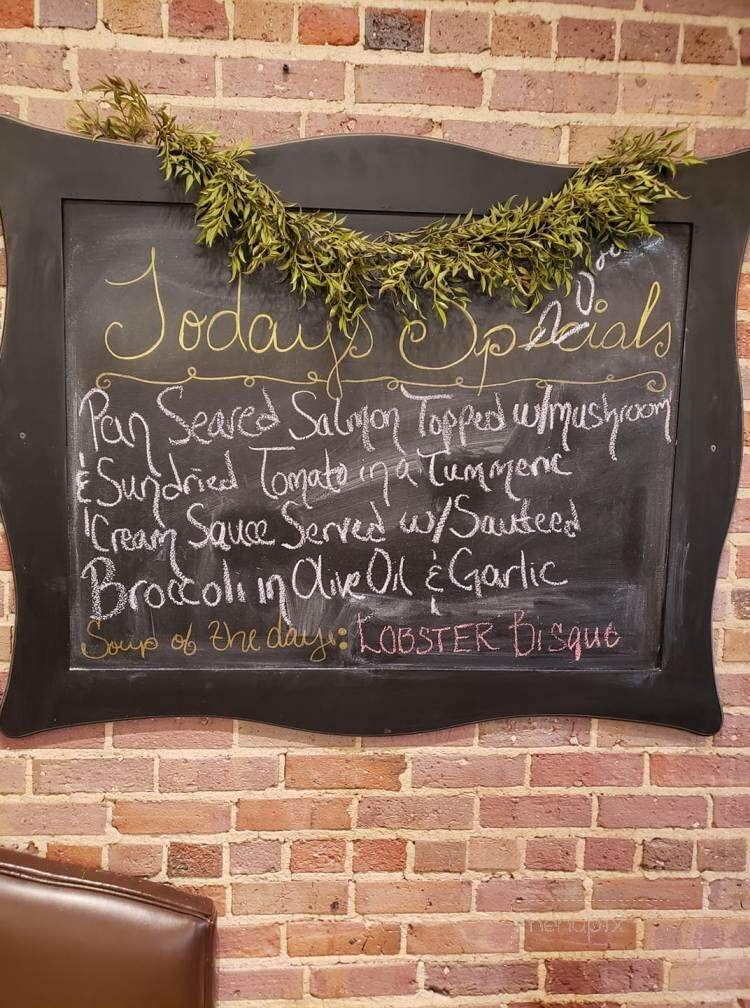 Today's Specials
Pan Seared Salmon Topped w/mushroom
& Sundried Tomato in a Tummeric
Cream Sauce Served w/ Sauteed
Broccoli in Olive Oil & Garlic
Soup of the day: LOBSTER Bisque
menupix